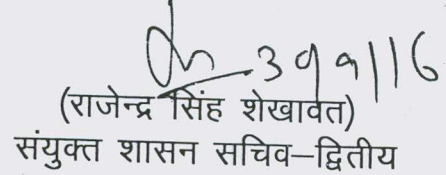 (राजेन्द्र सिंह शेखावत)
संयुक्त शासन सचिव–द्वितीय